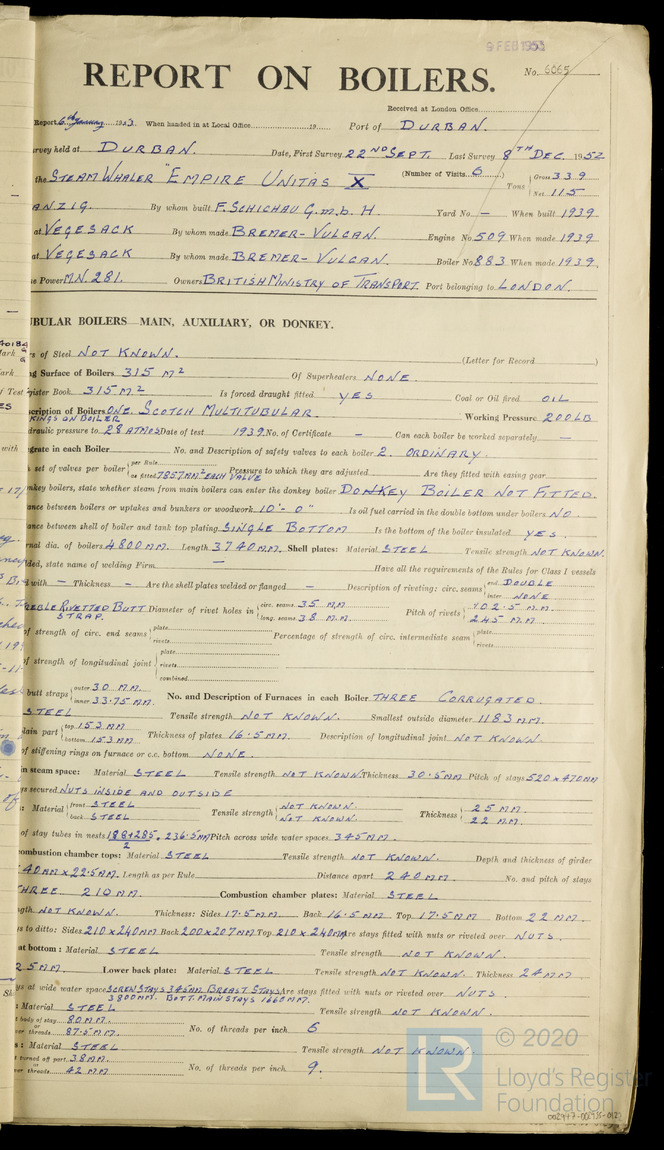 9 FEB 1953
REPORT ON BOILERS.
No. 6065
Received at London Office
Report 6th January 1953. When handed in at Local Office 19 Port of DURBAN.
urvey held at DURBAN. Date, First Survey 22ND SEPT. Last Survey 8TH DEC. 1952
the STEAM WHALER "EMPIRE UNITAS X (Number of Visits 6) Tons Gross 339
Net 115
ANZIG. By whom built F. SCHICHAU G.m.b.H Yard No. — When built 1939
at VEGESACK By whom made BREMER-VULCAN. Engine No. 509 When made 1939
at VEGESACK By whom made BREMER-VULCAN. Boiler No. 883 When made 1939.
e Power MN. 281. Owners BRITISH MINISTRY OF TRANSPORT. Port belonging to LONDON.
UBULAR BOILERS—MAIN, AUXILIARY, OR DONKEY.
rs of Steel NOT KNOWN. (Letter for Record )
ng Surface of Boilers 315 M2 Of Superheaters NONE.
gister Book 315 M.2 Is forced draught fitted YES Coal or Oil fired OIL
scription of Boilers ONE SCOTCH MULTITUBULAR. Working Pressure 200LB
KINGS ON BOILER
draulic pressure to 28 ATMOS Date of test 1939. No. of Certificate — Can each boiler be worked separately —
grate in each Boiler No. and Description of safety valves to each boiler 2. ORDINARY.
set of valves per boiler per Rule
as fitted 7857MM2 EACH VALVE Pressure to which they are adjusted Are they fitted with easing gear
nkey boilers, state whether steam from main boilers can enter the donkey boiler DONKEY BOILER NOT FITTED.
ance between boilers or uptakes and bunkers or woodwork 10'-0" Is oil fuel carried in the double bottom under boilers NO.
ance between shell of boiler and tank top plating SINGLE BOTTOM Is the bottom of the boiler insulated YES.
rnal dia. of boilers 4800MM. Length 3740MM. Shell plates: Material STEEL Tensile strength NOT KNOWN.
ded, state name of welding Firm — Have all the requirements of the Rules for Class I vessels
d with — Thickness — Are the shell plates welded or flanged — Description of riveting: circ. seams end DOUBLE
inter. NONE
REBLE RIVETTED BUTT STRAP. Diameter of rivet holes in circ. seams 35 MM
long. seams 38 M.M. Pitch of rivets 102.5 M.M.
245 M.M.
of strength of circ. end seams plate
rivets Percentage of strength of circ. intermediate seam plate
rivets
of strength of longitudinal joint plate
rivets
combined
butt straps outer 30 MM.
inner 33.75 MM. No. and Description of Furnaces in each Boiler THREE CORRUGATED.
STEEL Tensile strength NOT KNOWN. Smallest outside diameter 1183 MM.
lain part top 153 MM
bottom 153 MM Thickness of plates 16.5 MM. Description of longitudinal joint NOT KNOWN.
of stiffening rings on furnace or c.c. bottom NONE.
in steam space: Material STEEL Tensile strength NOT KNOWN. Thickness 30.5MM Pitch of stays 520 x 470MM
ys secured NUTS INSIDE AND OUTSIDE
: Material front STEEL
back STEEL Tensile strength NOT KNOWN.
NOT KNOWN. Thickness 25 MM.
22 MM.
of stay tubes in nests 188+285 / 2 = 236.5MM Pitch across wide water spaces 345MM.
ombustion chamber tops: Material STEEL Tensile strength NOT KNOWN. Depth and thickness of girder
40MM x 22.5MM. Length as per Rule Distance apart 240MM. No. and pitch of stays
THREE 210 MM. Combustion chamber plates: Material STEEL
ngth NOT KNOWN. Thickness: Sides 17.5MM. Back 16.5MM Top 17.5MM Bottom 22MM.
ys to ditto: Sides 210x240MM Back 200x207MM. Top 210 x 240MM Are stays fitted with nuts or riveted over NUTS.
nt bottom: Material STEEL Tensile strength NOT KNOWN.
25MM. Lower back plate: Material STEEL Tensile strength NOT KNOWN. Thickness 24MM
ys at wide water space SCREW STAYS 345MM BREAST STAYS Are stays fitted with nuts or riveted over NUTS.
3800MM. BOTT. MAIN STAYS 1660MM.
: Material STEEL Tensile strength NOT KNOWN.
t body of stay 80MM.
or
er threads 87.5MM. No. of threads per inch 6
s: Material STEEL Tensile strength NOT KNOWN.
t turned off part 38MM.
or
er threads 42 MM No. of threads per inch. 9.
© 2020
Lloyd's Register
Foundation
LR
002947-002955-0121